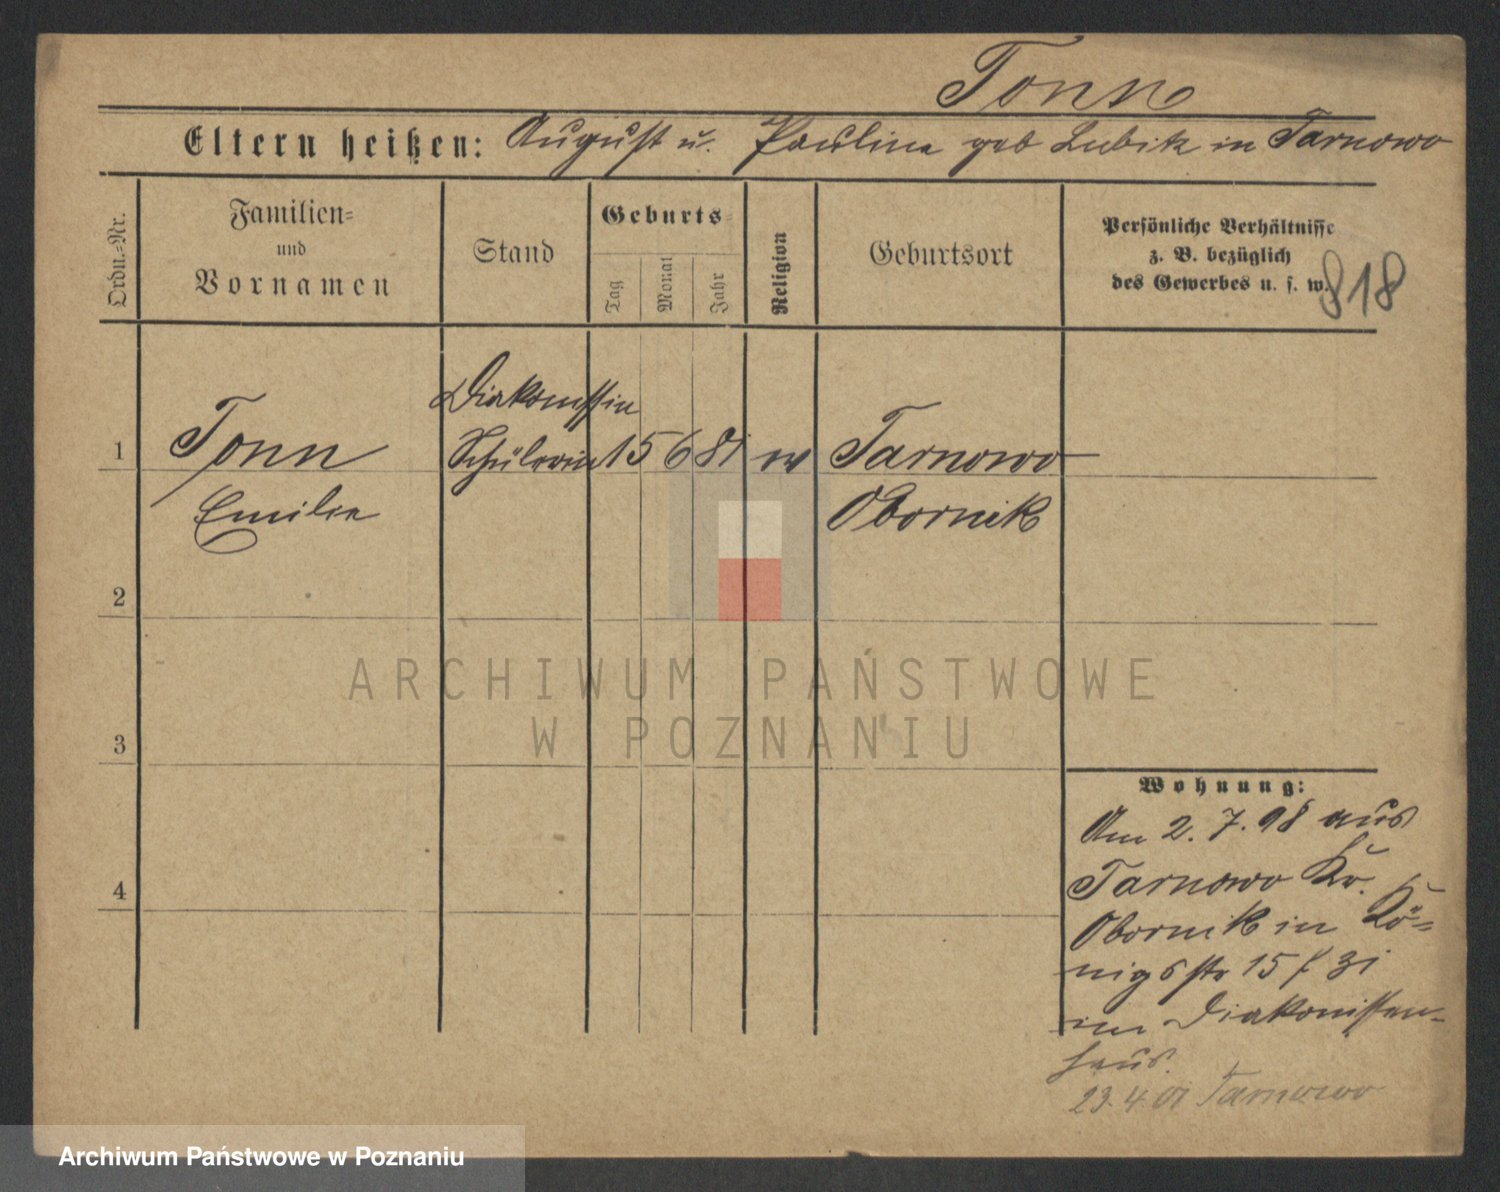 Tonn
Eltern heißen: August u. Paulina geb Lubik in Tarnowo
Ordn.-Nr.
Familien-
und
Vornamen
Stand
Geburts-
Tag
Monat
Jahr
Religion
Geburtsort
Persönliche Verhältnisse
z. B. bezüglich
des Gewerbes u. s. w.
818
Diakonissin
1 Tonn Schülerin 15 6 81 Tarnowo
Emilie Obornik
2
3
4
Wohnung:
Am 2. 7. 98 aus
Tarnowo Kr.
Obornik in Kö-
nigsstr 15
im Diakonissen-
haus.
23.4.01 Tarnowo
ARCHIWUM PAŃSTWOWE
W POZNANIU
Archiwum Państwowe w Poznaniu